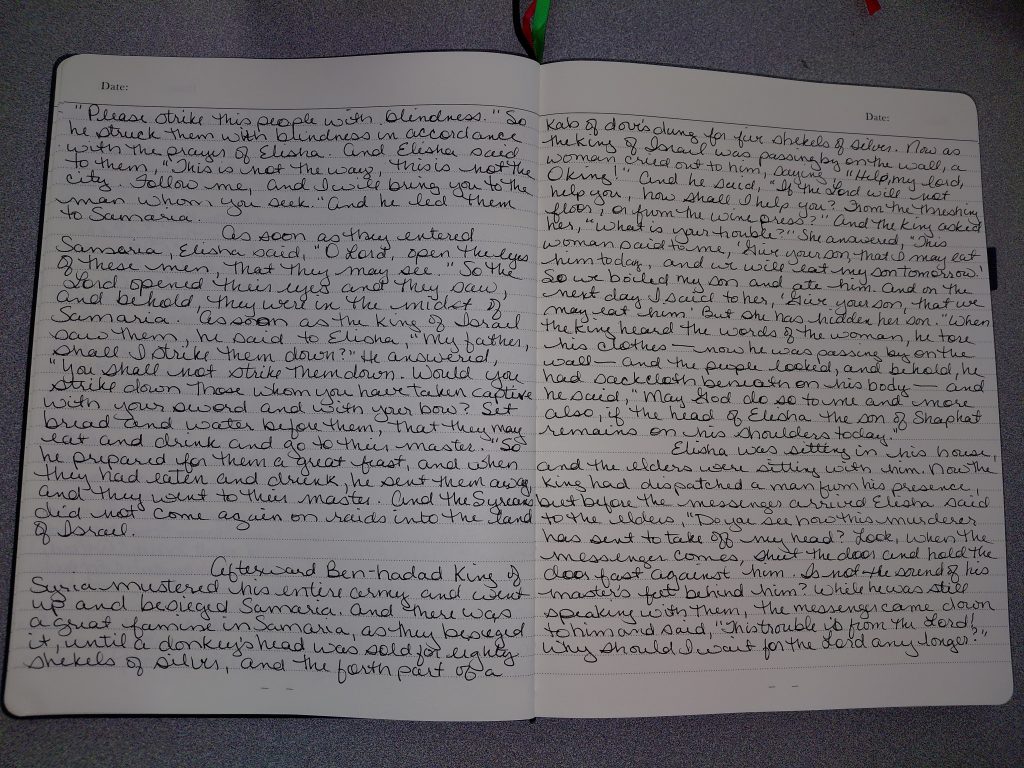 Date:
"Please strike this people with blindness." So
he struck them with blindness in accordance
with the prayer of Elisha. And Elisha said
to them, "This is not the way, this is not the
city. Follow me, and I will bring you to the
man whom you seek." And he led them
to Samaria.
As soon as they entered
Samaria, Elisha said, "O Lord, open the eyes
of these men, that they may see." So the
Lord opened their eyes and they saw,
and behold, they were in the midst of
Samaria. As soon as the King of Israel
saw them, he said to Elisha, "My father,
shall I strike them down?" He answered,
"You shall not strike them down. Would you
strike down those whom you have taken captive
with your sword and with your bow? Set
bread and water before them, that they may
eat and drink and go to their master." So
he prepared for them a great feast, and when
they had eaten and drunk, he sent them away,
and they went to their master. And the Syrians
did not come again on raids into the land
of Israel.
Afterward Ben-hadad King of
Syria mustered his entire army and went
up and besieged Samaria. And there was
a great famine in Samaria, as they besieged
it, until a donkey's head was sold for eighty
shekels of silver, and the forth part of a
Date:
kab of dove's dung for five shekels of silver. Now as
the King of Israel was passing by on the wall, a
woman cried out to him, saying, "Help, my lord,
O king!" And he said, "If the Lord will not
help you, how shall I help you? From the threshing
floor, or from the wine press?" And the King asked
her, "What is your trouble?" She answered, "This
woman said to me, 'Give your son, that I may eat
him today, and we will eat my son tomorrow.'
So we boiled my son and ate him. And on the
next day I said to her, 'Give your son, that we
may eat him.' But she has hidden her son." When
the King heard the words of the woman, he tore
his clothes — now he was passing by on the
wall — and the people looked, and behold, he
had sackcloth beneath on his body — and
he said, "May God do so to me and more
also, if the head of Elisha the son of Shaphat
remains on his shoulders today."
Elisha was sitting in his house,
and the elders were sitting with him. Now the
King had dispatched a man from his presence,
but before the messenger arrived Elisha said
to the elders, "Do you see how this murderer
has sent to take off my head? Look, when the
messenger comes, shut the door and hold the
door fast against him. Is not the sound of his
master's feet behind him? While he was still
speaking with them, the messenger came down
to him and said, "This trouble is from the Lord!
Why should I wait for the Lord any longer?"